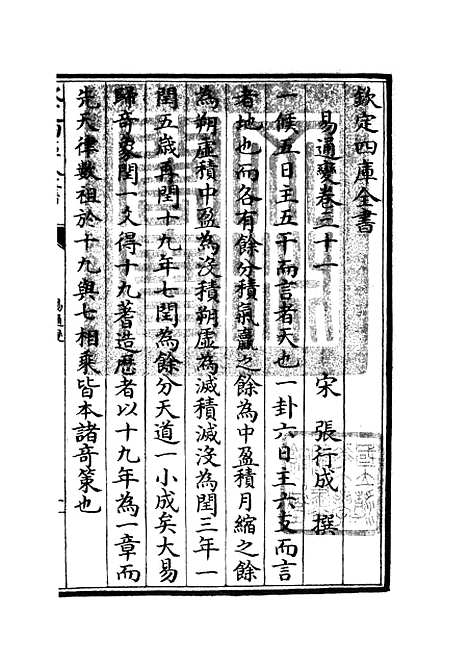 欽定四庫全書
易通變卷三十一
宋 張行成 撰
一候五日主五干而言者天也一卦六日主六支而言
者地也而各有餘分積氣贏之餘為中盈積月縮之餘
為朔虛積中盈為沒積朔虛為滅積滅沒為閏三年一
閏五歲再閏十九年七閏為餘分天道一小成矣大易
歸奇象閏一爻得十九蓍造厯者以十九年為一章而
先天律數祖於十九與七相乘皆本諸奇策也
易通變